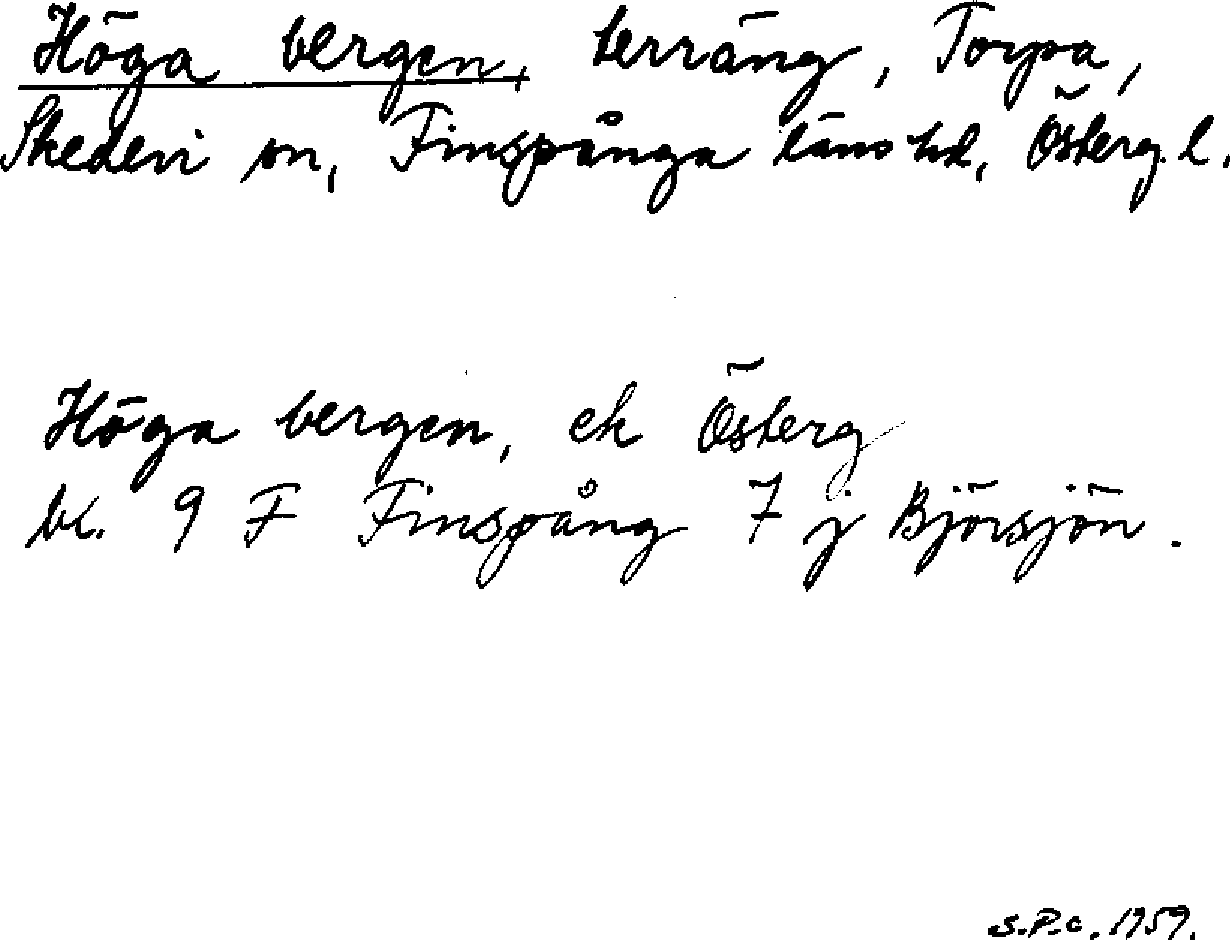 Höga bergen, terräng, Torpa,
Skedevi sn, Finspånga läns hd, Österg. l.
Höga bergen, ek Österg
bl. 9 F Finspång 7 j Björsjön.
S.P.C. 1959.